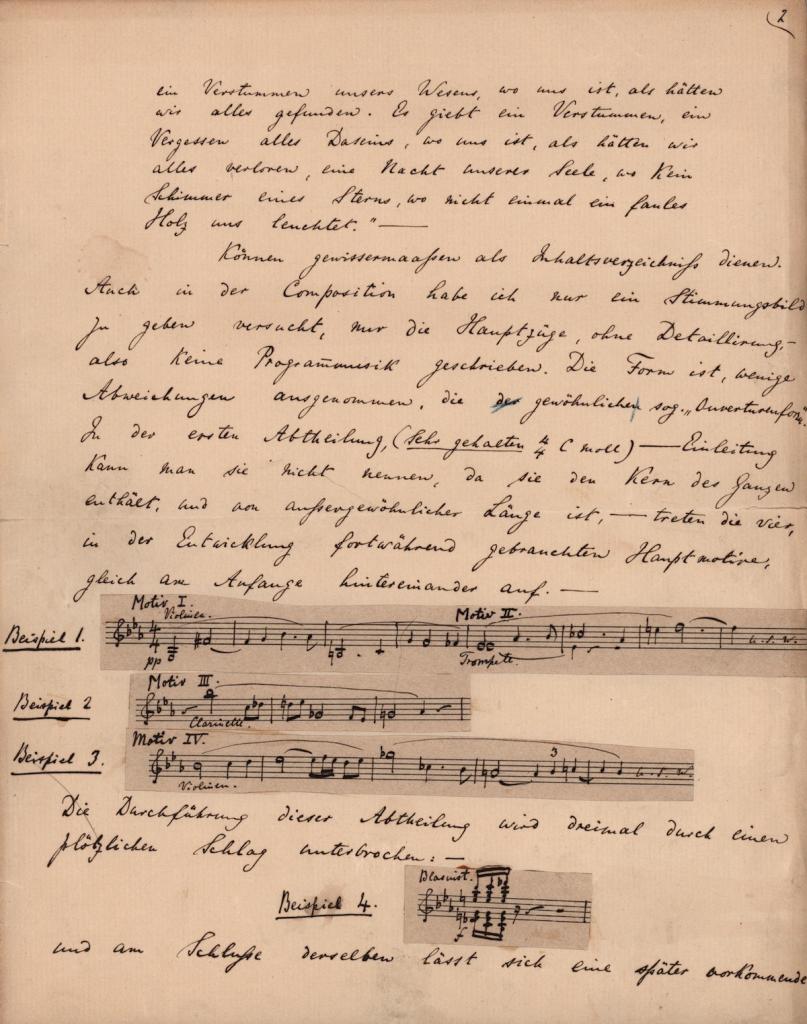 2
ein Verstummen unsers Wesens, wo uns ist, als hätten
wir alles gefunden. Es giebt ein Verstummen, ein
Vergessen alles Daseins, wo uns ist, als hätten wir
alles verloren, eine Nacht unserer Seele, wo kein
Schimmer eines Sterns, wo nicht einmal ein faules
Holz uns leuchtet." —
Können gewissermaassen als Inhaltsverzeichniss dienen.
Auch in der Composition habe ich nur ein Stimmungsbild
zu geben versucht, nur die Hauptzüge, ohne Detaillirung,-
also keine Programmusik geschrieben. Die Form ist, wenige
Abweichungen ausgenommen, die der gewöhnlichen sog. „Ouvertürenform".
In der ersten Abtheilung, (Sehr gehalten 4/4 C moll) — Einleitung
kann man sie nicht nennen, da sie den Kern des Ganzen
enthält, und von aussergewöhnlicher Länge ist, — treten die vier,
in der Entwicklung fortwährend gebrauchten Hauptmotive,
gleich am Anfange hintereinander auf. —
Beispiel 1. Motiv I. Violinen. pp Motiv II. Trompete. u. s. w.
Beispiel 2 Motiv III. Clarinette.
Beispiel 3. Motiv IV. Violinen. 3 u. s. w.
Die Durchführung dieser Abtheilung wird dreimal durch einen
plötzlichen Schlag unterbrochen: —
Beispiel 4. Blasinst. f
und am Schlusse derselben lässt sich eine später vorkommende